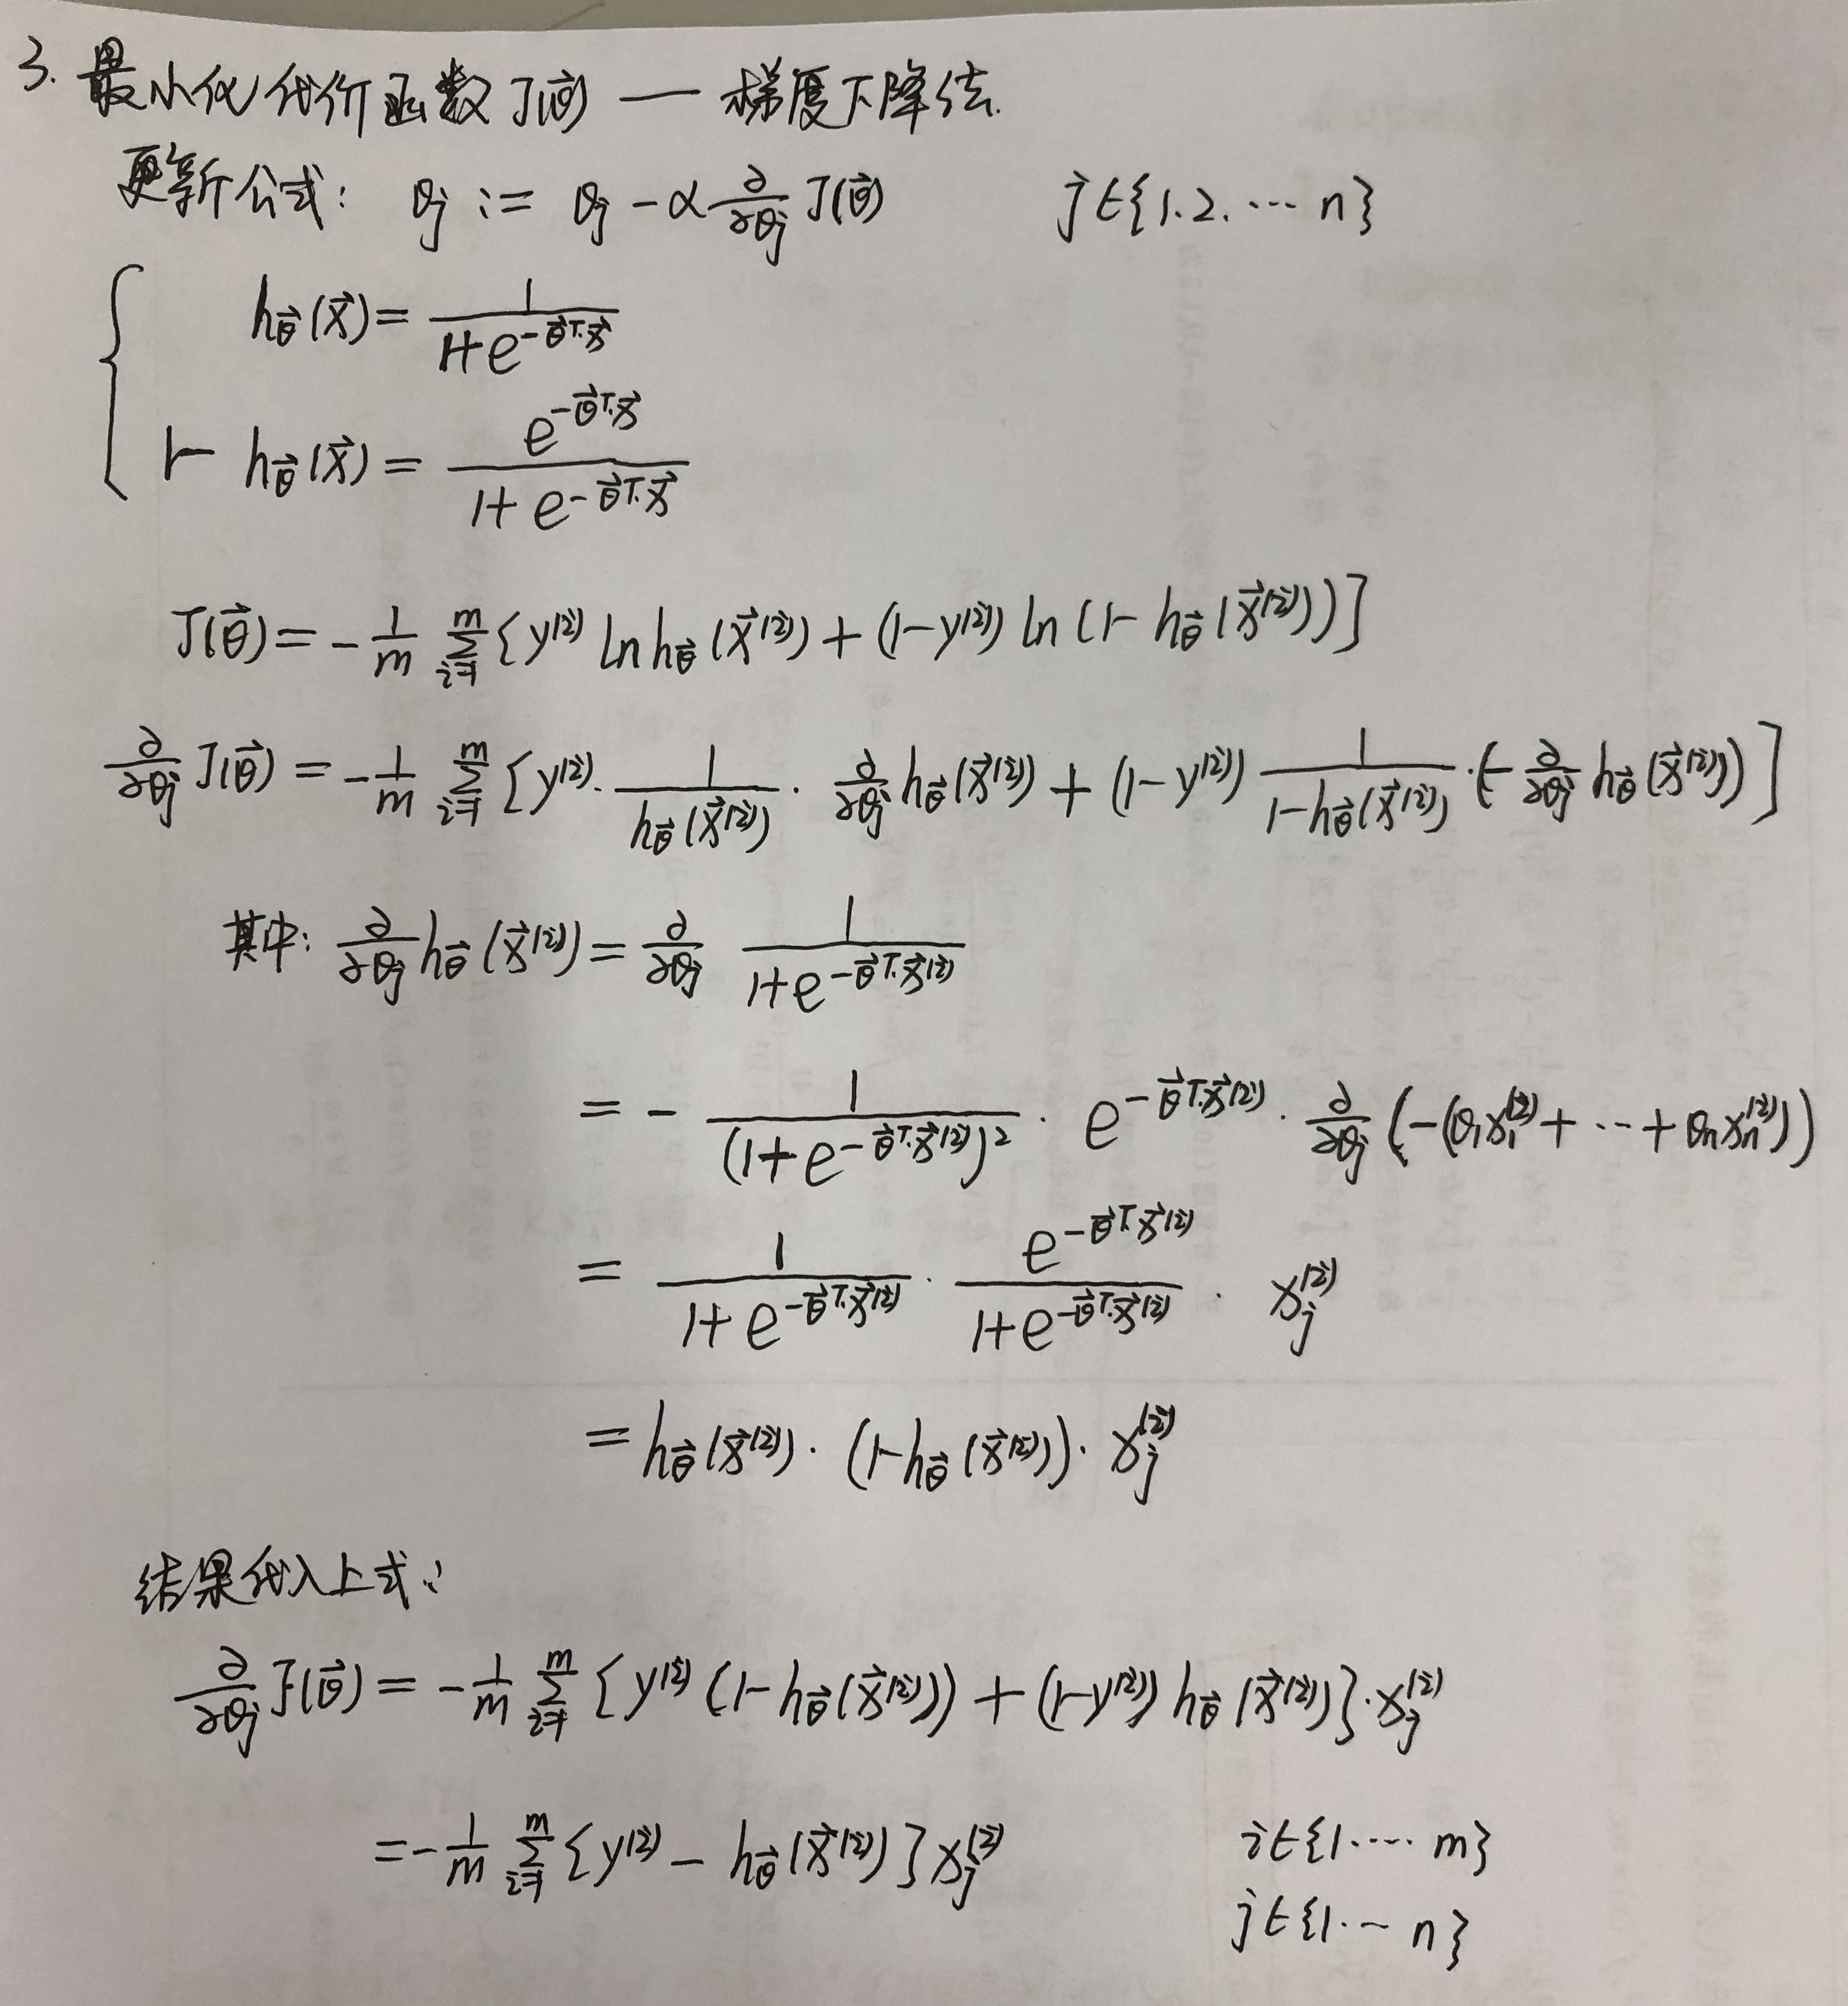 3. 最小化代价函数 J(θ⃗) — 梯度下降法.
更新公式: θj := θj - α ∂/∂θj J(θ⃗) j∈{1.2.…n}
h_θ⃗(x⃗) = 1/(1+e^(-θ⃗ᵀ·x⃗))
1- h_θ⃗(x⃗) = e^(-θ⃗ᵀ·x⃗)/(1+e^(-θ⃗ᵀ·x⃗))
J(θ⃗) = -1/m Σ_{i=1}^{m} [y^(i) ln h_θ⃗(x⃗^(i)) + (1-y^(i)) ln(1-h_θ⃗(x⃗^(i)))]
∂/∂θj J(θ⃗) = -1/m Σ_{i=1}^{m} [y^(i)·1/h_θ⃗(x⃗^(i)) · ∂/∂θj h_θ⃗(x⃗^(i)) + (1-y^(i)) 1/(1-h_θ⃗(x⃗^(i)))·(-∂/∂θj h_θ⃗(x⃗^(i)))]
其中: ∂/∂θj h_θ⃗(x⃗^(i)) = ∂/∂θj 1/(1+e^(-θ⃗ᵀ·x⃗^(i)))
= - 1/(1+e^(-θ⃗ᵀ·x⃗^(i)))² · e^(-θ⃗ᵀ·x⃗^(i)) · ∂/∂θj (-(θ₁x₁^(i)+…+θₙxₙ^(i)))
= 1/(1+e^(-θ⃗ᵀ·x⃗^(i))) · e^(-θ⃗ᵀ·x⃗^(i))/(1+e^(-θ⃗ᵀ·x⃗^(i))) · xj^(i)
= h_θ⃗(x⃗^(i)) · (1-h_θ⃗(x⃗^(i))) · xj^(i)
结果代入上式:
∂/∂θj J(θ⃗) = -1/m Σ_{i=1}^{m} [y^(i) (1-h_θ⃗(x⃗^(i))) + (1-y^(i)) h_θ⃗(x⃗^(i))]·xj^(i)
= -1/m Σ_{i=1}^{m} [y^(i) - h_θ⃗(x⃗^(i))] xj^(i) i∈{1.…m}
j∈{1.…n}